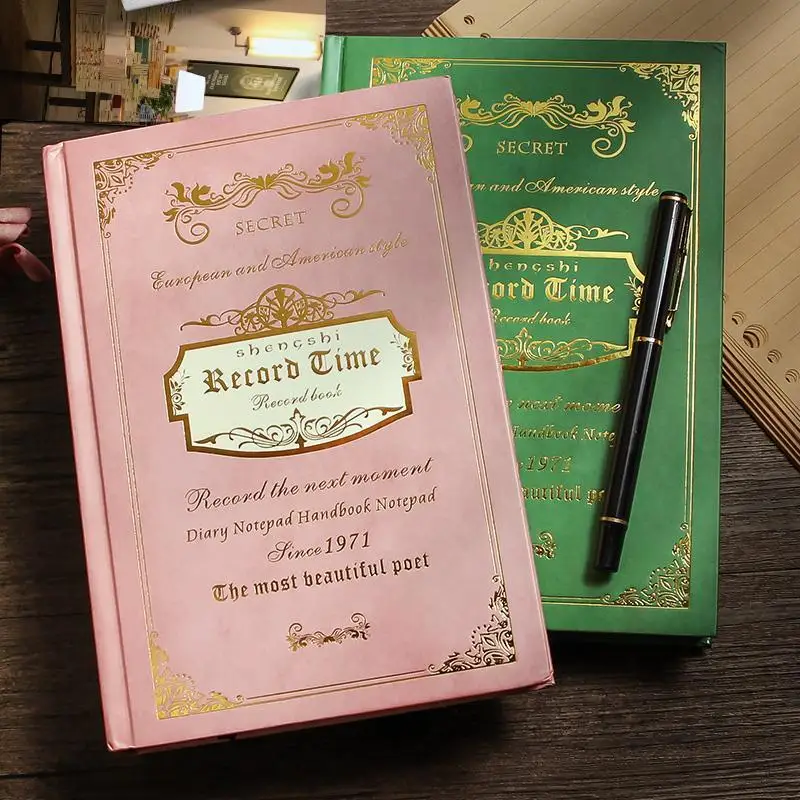 SECRET
European and American style
shengshi
Record Time
Record book
Record the next moment
Diary Notepad Handbook Notepad
Since 1971
The most beautiful poet
SECRET
an and American style
shengshi
ord Time
Record book
next mome
Handbook Note
1971
autiful po